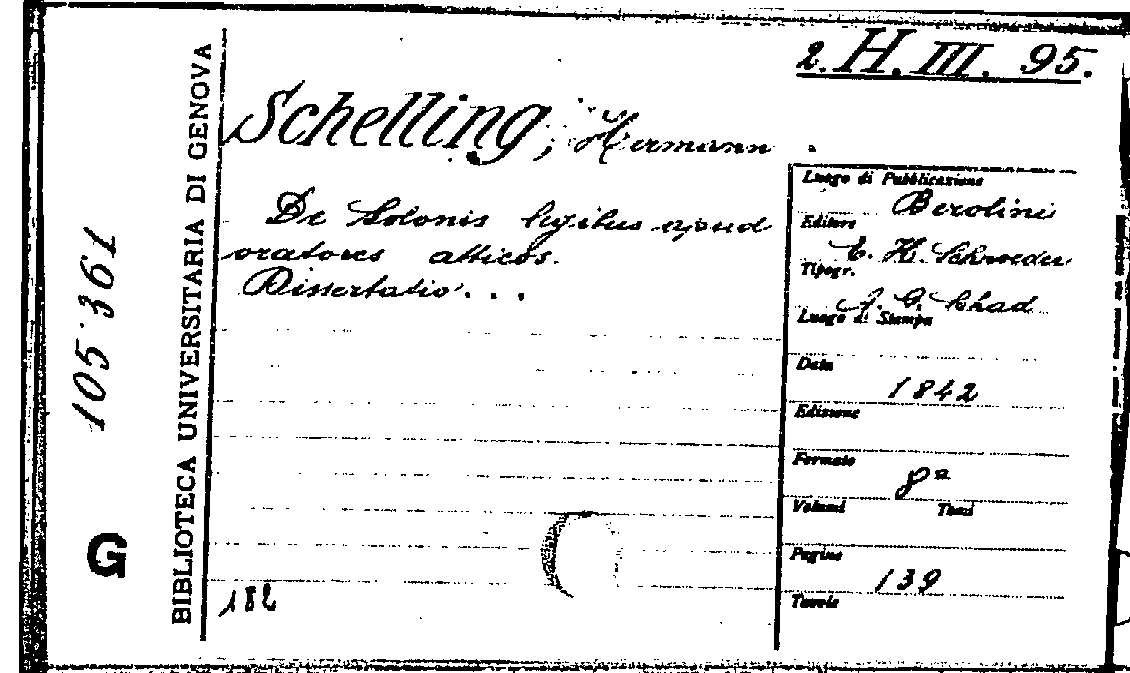 2. H. III. 95.
Schelling, Hermann
De Solonis legibus apud
oratores atticos.
Dissertatio...
Luogo di Pubblicazione
Berolini
Editore
E. H. Schroeder
Tipogr.
A. G. Schad
Luogo di Stampa
Data
1842
Edizione
Formato
8º
Volumi Tomi
Pagine
139
Tavole
182
BIBLIOTECA UNIVERSITARIA DI GENOVA
105'361
G